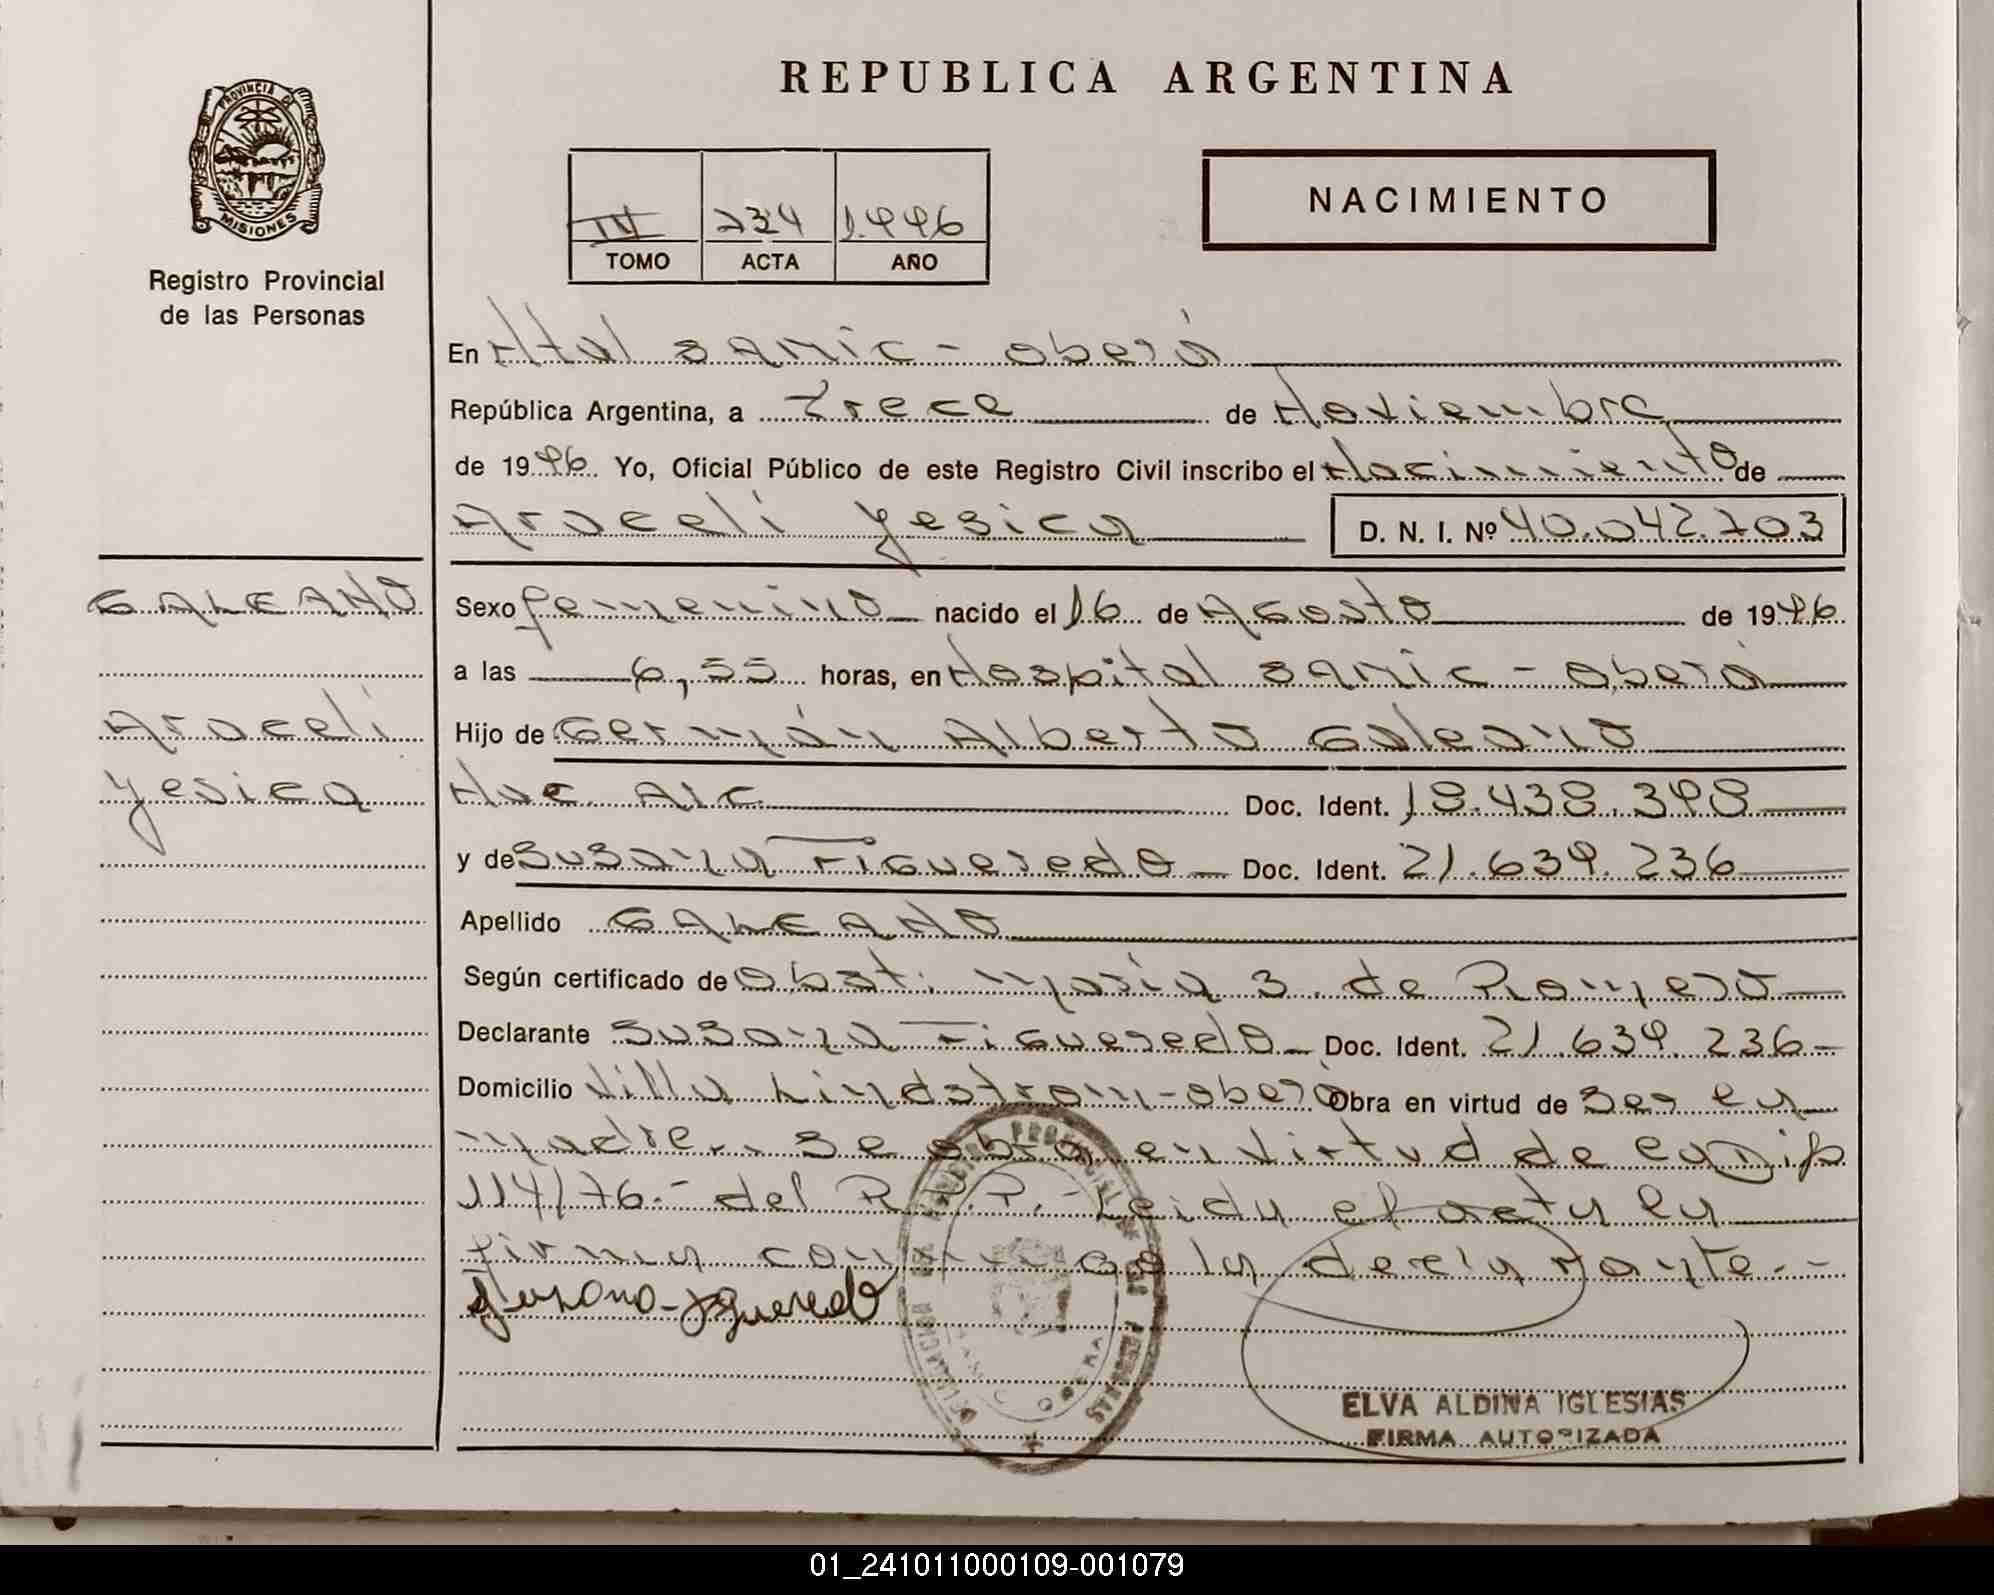 REPUBLICA ARGENTINA
PROVINCIA DE
MISIONES
Registro Provincial
de las Personas
IV 234 1.996
TOMO ACTA AÑO
NACIMIENTO
En Htal SAMIC - Oberá
República Argentina, a Trece de Noviembre
de 1996 Yo, Oficial Público de este Registro Civil inscribo el Nacimiento de
Araceli Yesica D. N. I. Nº 40.042.703
GALEANO
Araceli
Yesica
Sexo femenino nacido el 16 de Agosto de 1996
a las 6,55 horas, en Hospital SAMIC - Oberá
Hijo de Germán Alberto Galeano
Nac. Arg. Doc. Ident. 18.438.398
y de Susana Figueredo Doc. Ident. 21.639.236
Apellido GALEANO
Según certificado de Obst. María S. de Romero
Declarante Susana Figueredo Doc. Ident. 21.639.236
Domicilio Villa Lindstrom - Oberá Obra en virtud de Ser la
madre. Se obra en virtud de
114/76.- del R.P.P. - Leida el acta la
firma conmigo la declarante.-
Susana Figueredo
ELVA ALDINA IGLESIAS
FIRMA AUTORIZADA
01_241011000109-001079